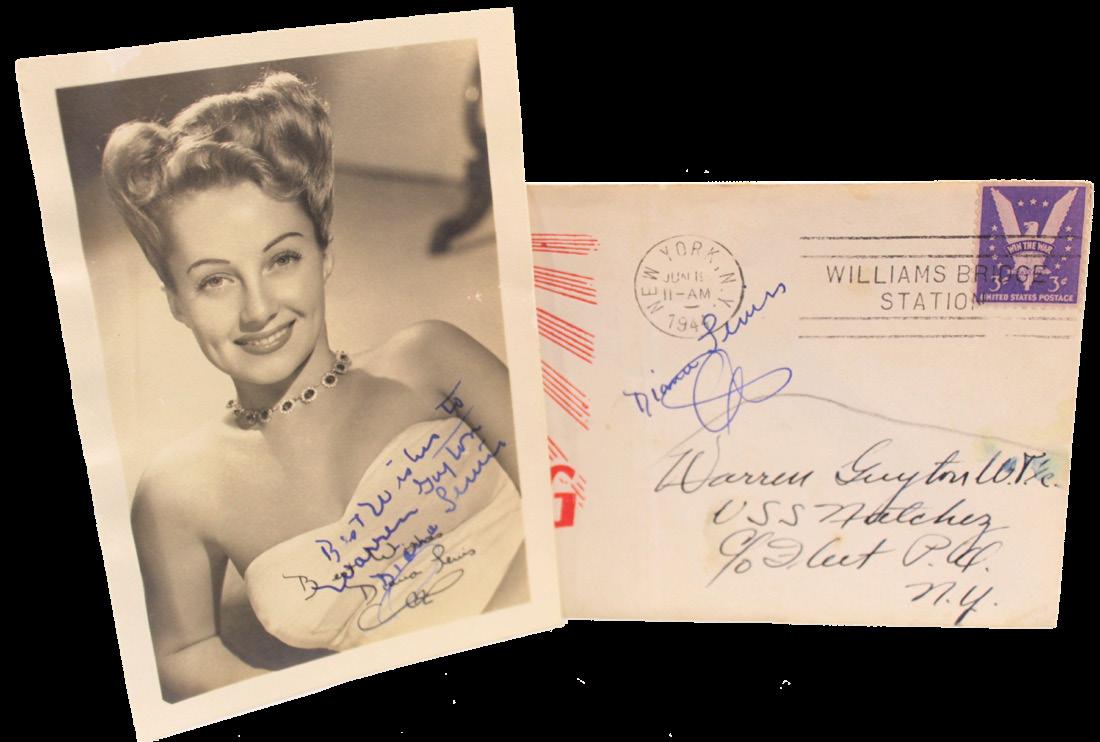 Best Wishes to
Warren Guyton
Diana Lewis
Best Wishes
Diana Lewis
NEW YORK, N.Y.
JUN
11-AM
WILLIAMS BRIDGE
STATION
WIN THE WAR
3¢ 3¢
UNITED STATES POSTAGE
Diana Lewis
Warren Guyton
USS Natchez
c/o Fleet P.O.
N.Y.